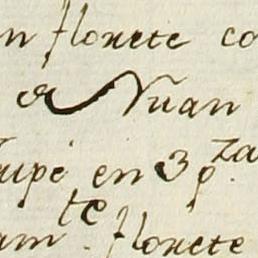 n florete co
a Nuan
upe en 3 p. za
am te. florete